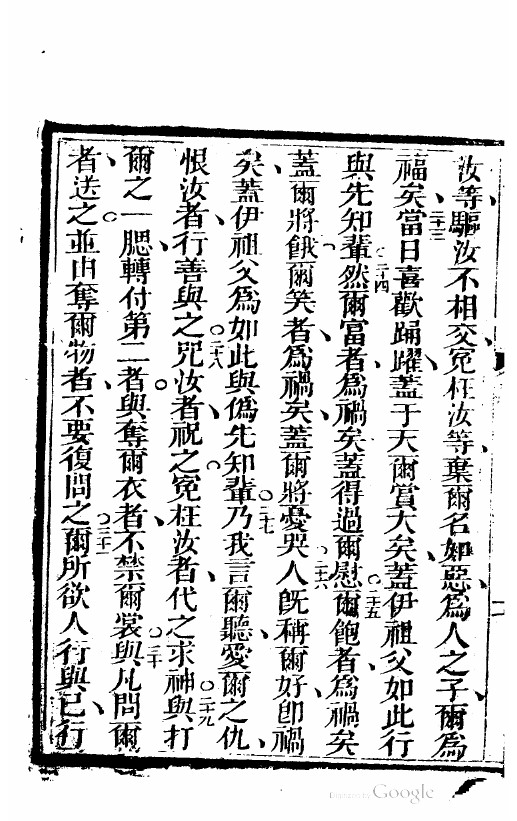 汝等驅汝不相交寃枉汝等棄爾名如惡爲人之子爾爲
福矣二十三當日喜歡踊躍蓋于天爾賞大矣蓋伊祖父如此行
與先知輩二十四然爾富者爲禍矣蓋得過爾慰二十五爾飽者爲禍矣
蓋爾將餓爾笑者爲禍矣蓋爾將憂哭二十六人旣稱爾好卽禍
矣蓋伊祖父爲如此與僞先知輩二十七乃我言爾聽愛爾之仇
恨汝者行善與之二十八咒汝者祝之寃枉汝者代之求神二十九與打
爾之一腮轉付第二者與奪爾衣者不禁爾裳三十與凡問爾
者送之並由奪爾物者不要復問之三十一爾所欲人行與己行
Digitized by Google